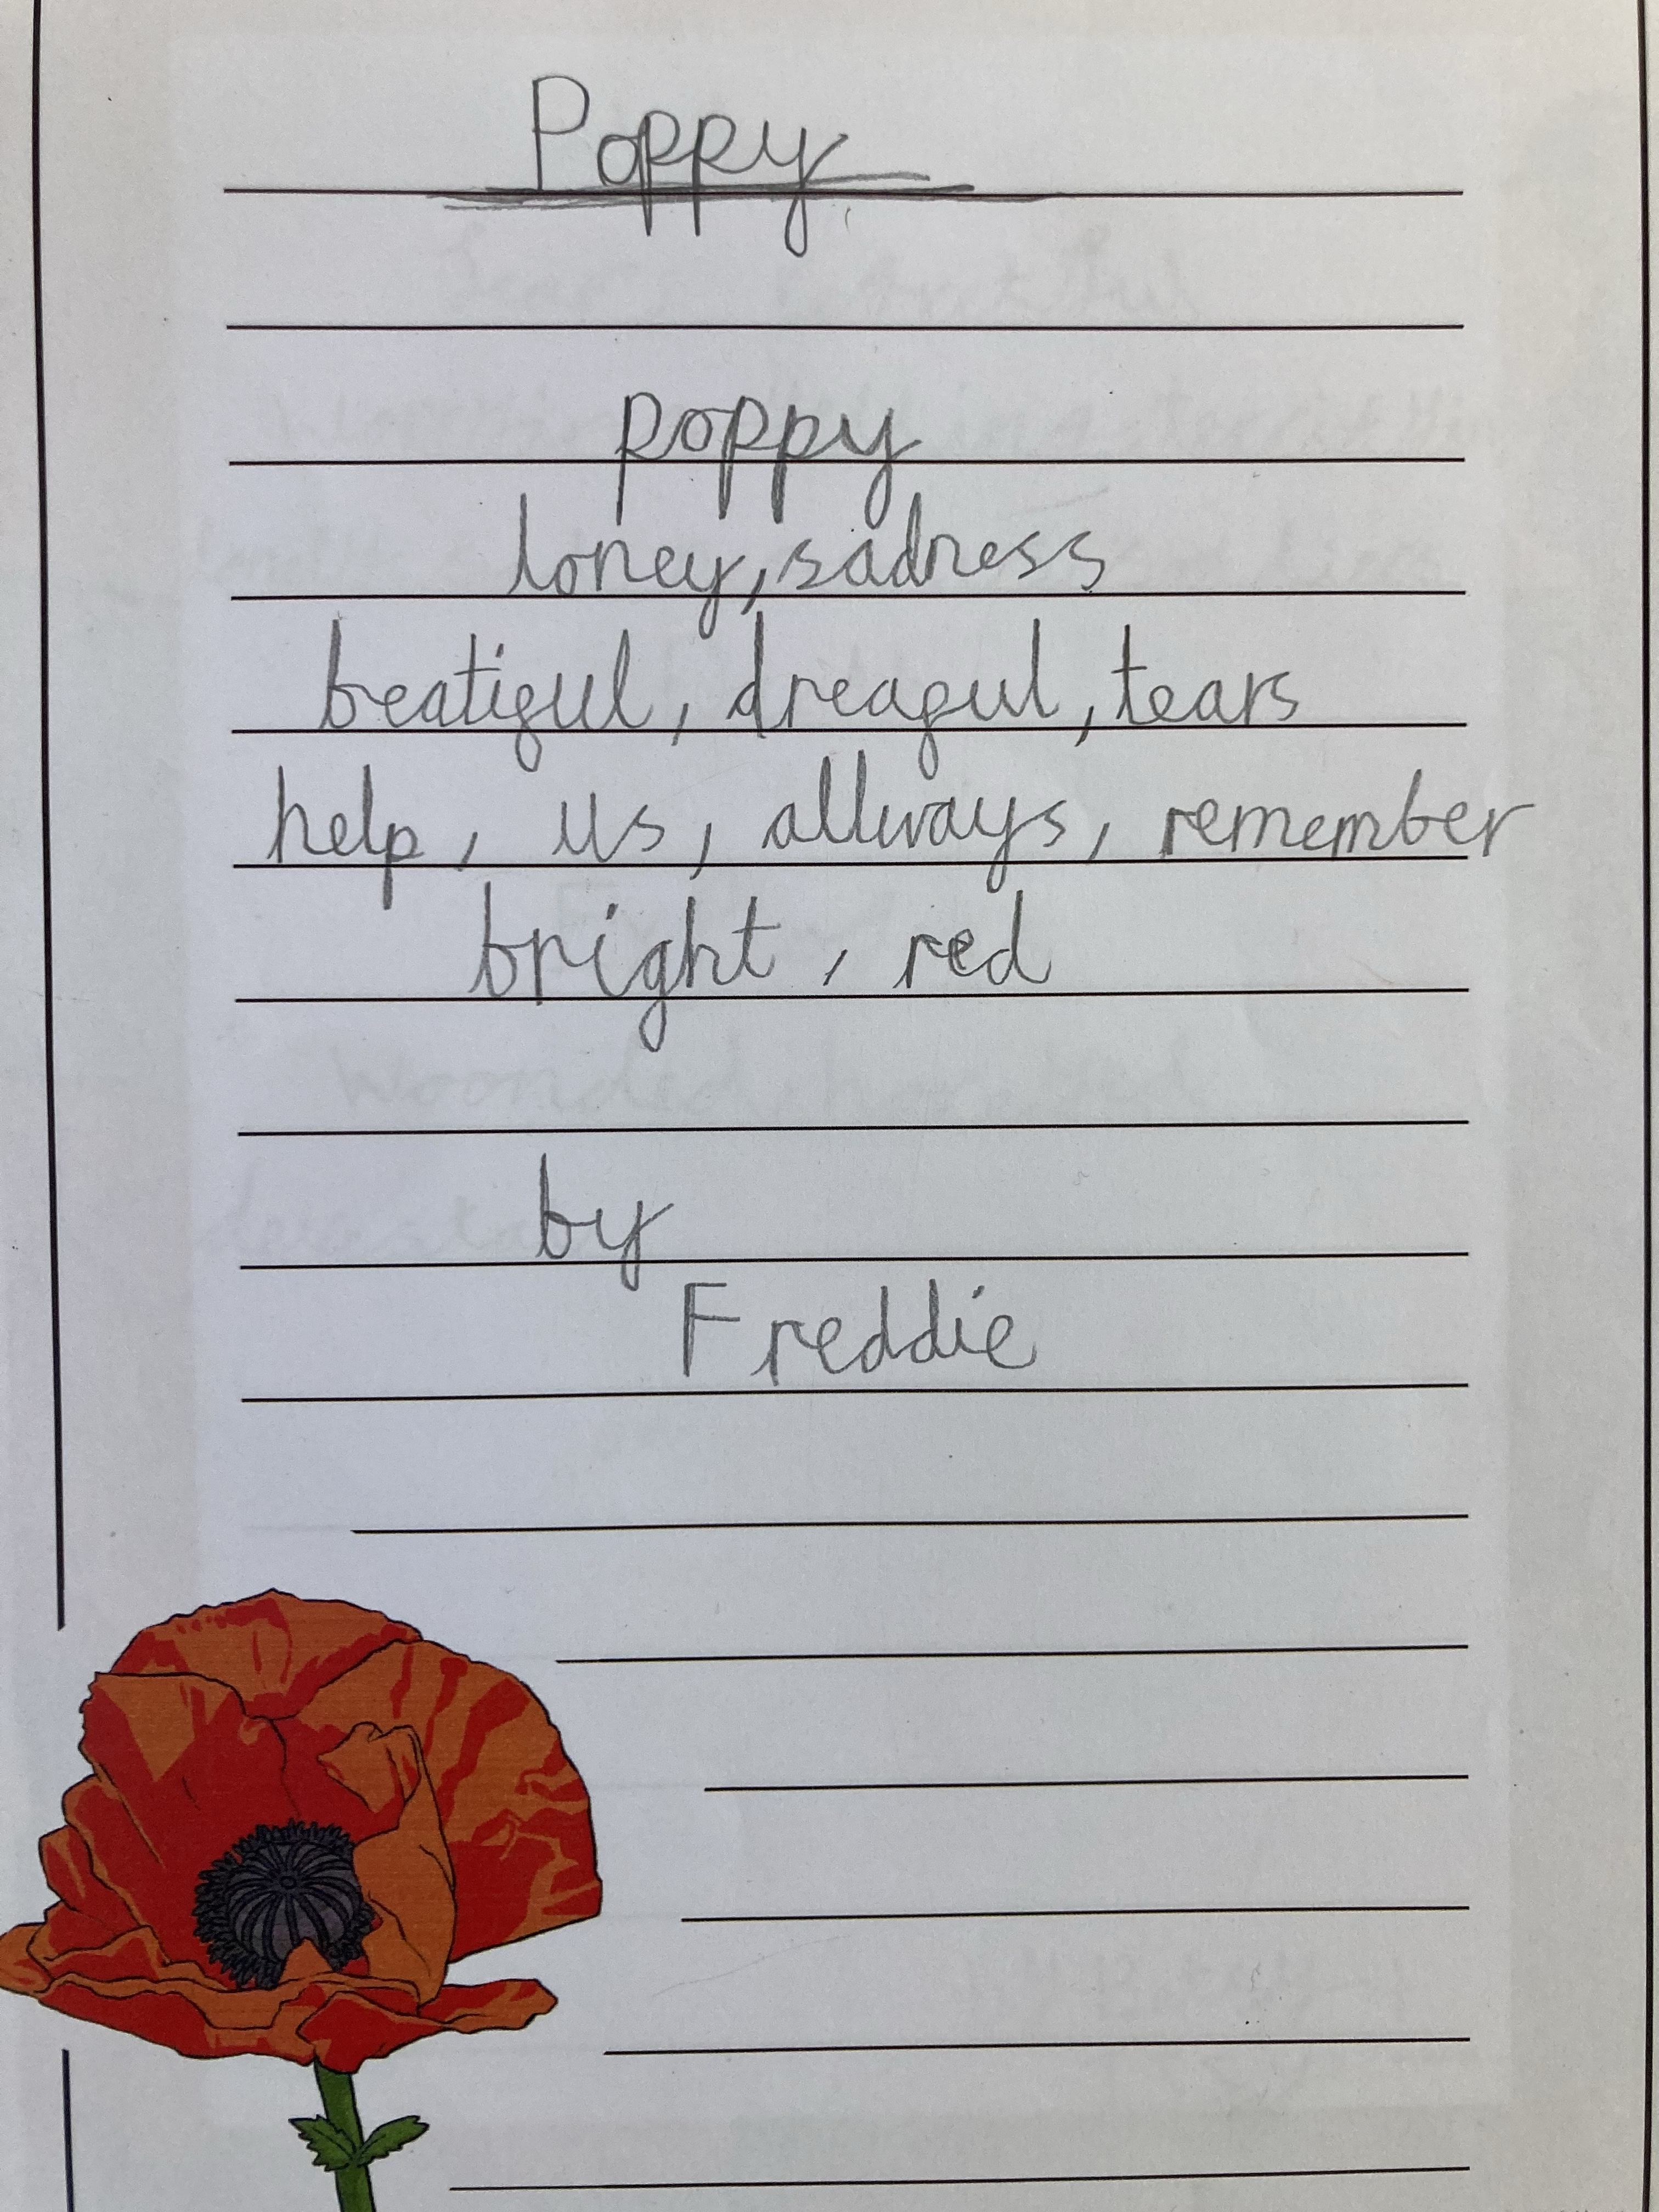 Poppy
poppy
loney, sadness
beatiful, dreaful, tears
help, us, allways, remember
bright, red
by
Freddie